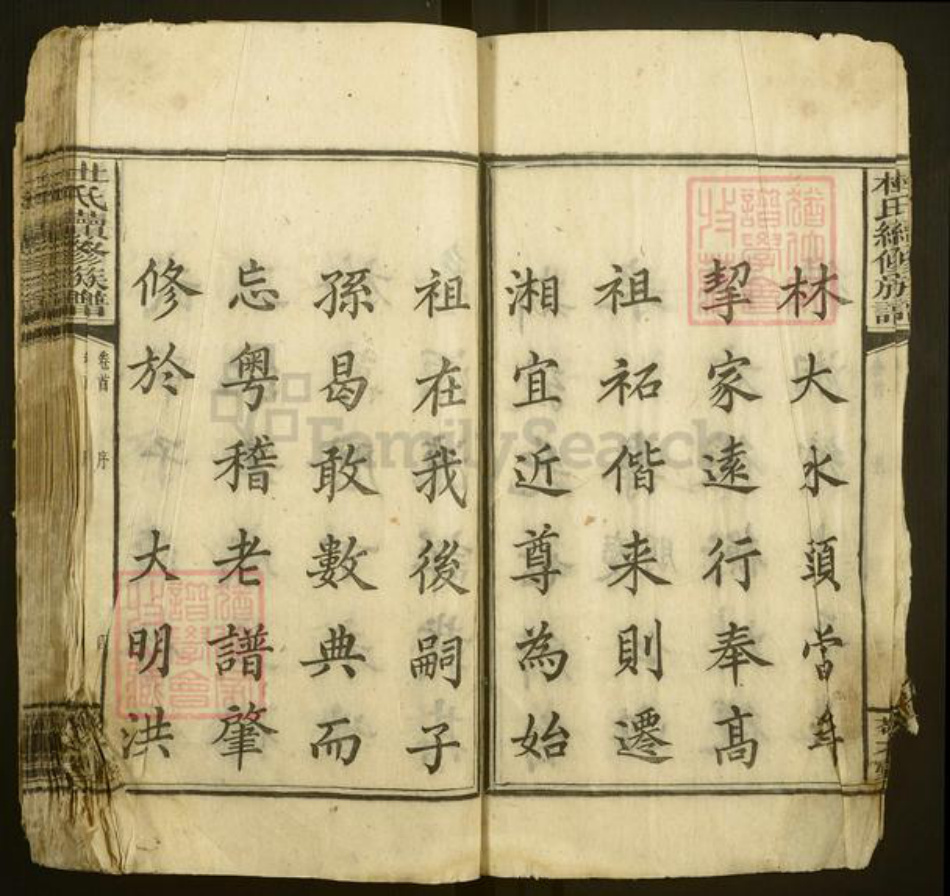 林大水頭當年
挈家遠行奉高
祖祏偕来則遷
湘宜近尊為始
祖在我後嗣子
孫曷敢數典而
忘粤稽老譜肇
修於 大明洪
杜氏續修族譜
卷首 序
FamilySearch